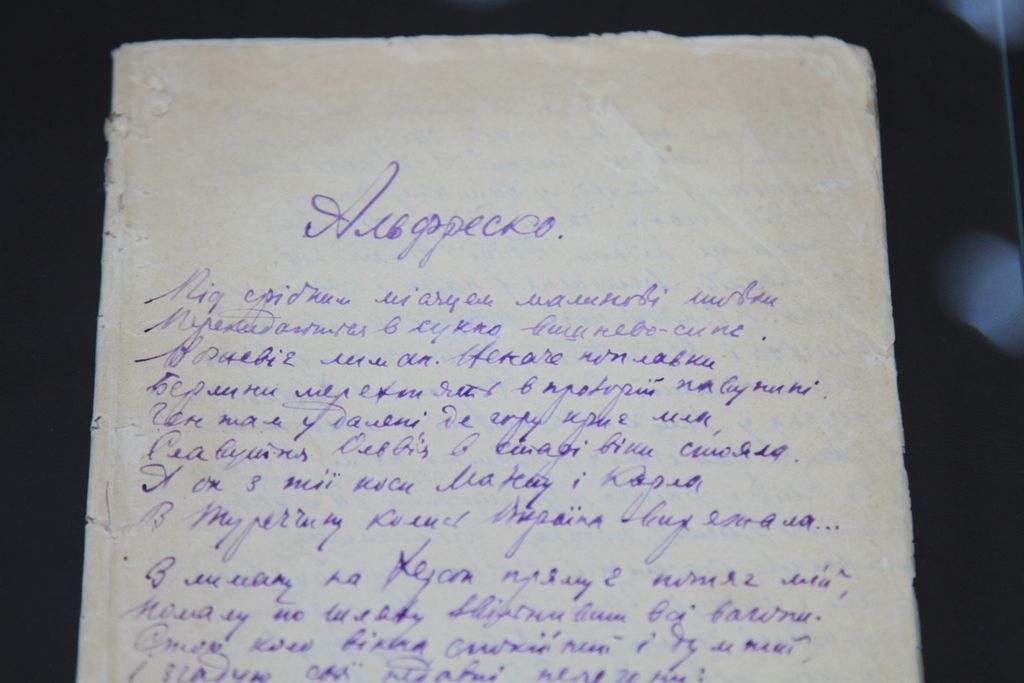 Альфреско.
Під срібним місяцем малинові шовки
Перекидаються в сукно вишнево-синє.
Рожевіє лиман. Неначе поплавки
Берлини мерехтять в прозорій павутині.
Ген там у далені де гору криє мла,
Славутня Ольвія в сташі віки стояла.
А он з тії коси Мазепу і Карла
В Туреччину колись Україна виряжала...
З лиману на Херсон прямує потяг мій,
Помалу по шляху всі вагони.
Стою коло вікна спокійний і думний,
І згадую свої недавні перегони: